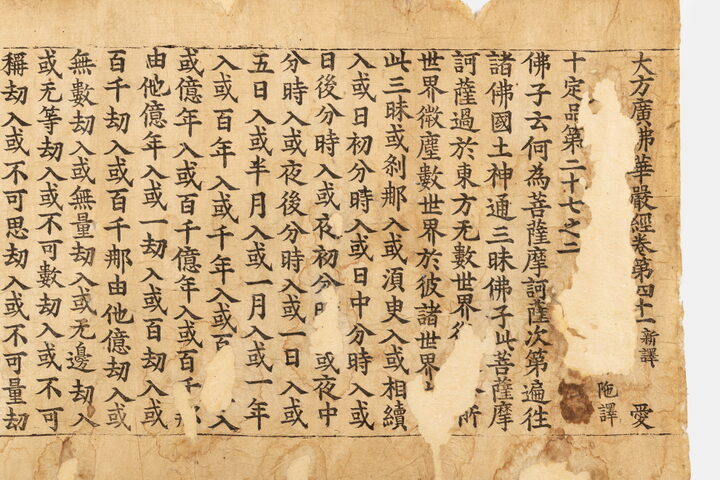 大方廣佛華嚴經卷第四十一 新譯 愛
陁譯
十定品第二十七之二
佛子云何為菩薩摩訶薩次第遍徃
諸佛國土神通三昧佛子此菩薩摩
訶薩過於東方无數世界 所
世界微塵數世界於彼諸世界
此三昧或刹那入或湏臾入或相續
入或日初分時入或日中分時入或
日後分時入或夜初分 或夜中
分時入或夜後分時入或一日入或
五日入或半月入或一月入或一年
入或百年入或千年入或 入
或億年入或百千億年入或百千那
由他億年入或一劫入或百劫入或
百千劫入或百千那由他億劫入或
無數劫入或無量劫入或无邊劫入
或无等劫入或不可數劫入或不可
稱劫入或不可思劫入或不可量劫